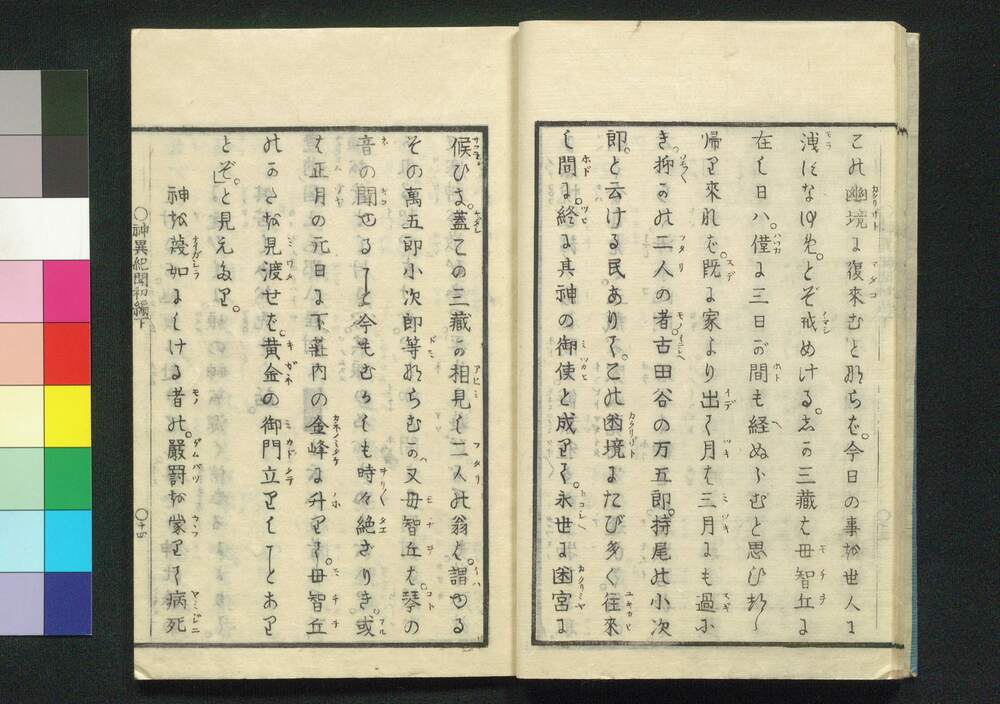 この幽境に復來むとならば。今日の事を世人に
洩すなゆめ。とぞ戒めける。さて三藏は毋智丘に
在し日ハ。僅に三日が間も経ぬらむと思ひしに
帰り來れば。既に家より出て月は三月にも過に
き。抑この二人の者。古田谷の万五郎。持尾の小次
郎。と云ける民ありて。この幽境にたび多く往來
し間に。終に其神の御使と成りて。永世に幽宮に
候ひき。蓋この三藏が相見し二人の翁は。謂ゆる
その萬五郎小次郎等ならむか。又毋智丘は。琴の
音の聞ゆること今も時々絶ざりき。或
は正月の元日に下莊内の金峰に升りて。毋智丘
のかたを見渡せば。黄金の御門立りしことあり
とぞ」と見えたり。
神を蔑如にしける者の。嚴罰を蒙りて病死
〇神異紀聞初編下 〇十四